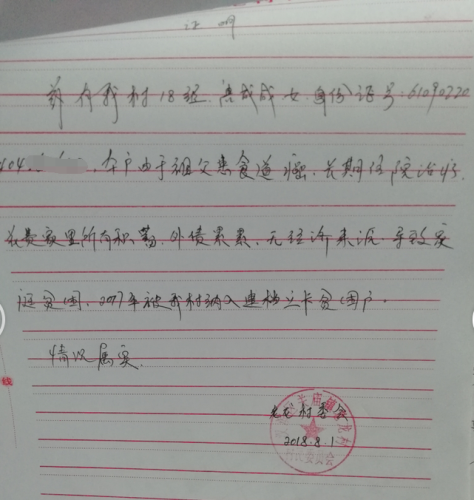 证明
兹有我村18组 女.身份证号:61090220
404 本户由于祖父患食道癌.长期住院治疗.
花费家里所有积蓄.外债累累.无经济来源.导致家
庭贫困.2017年被我村纳入建档立卡贫困户.
情况属实.
村委会
2018.8.1